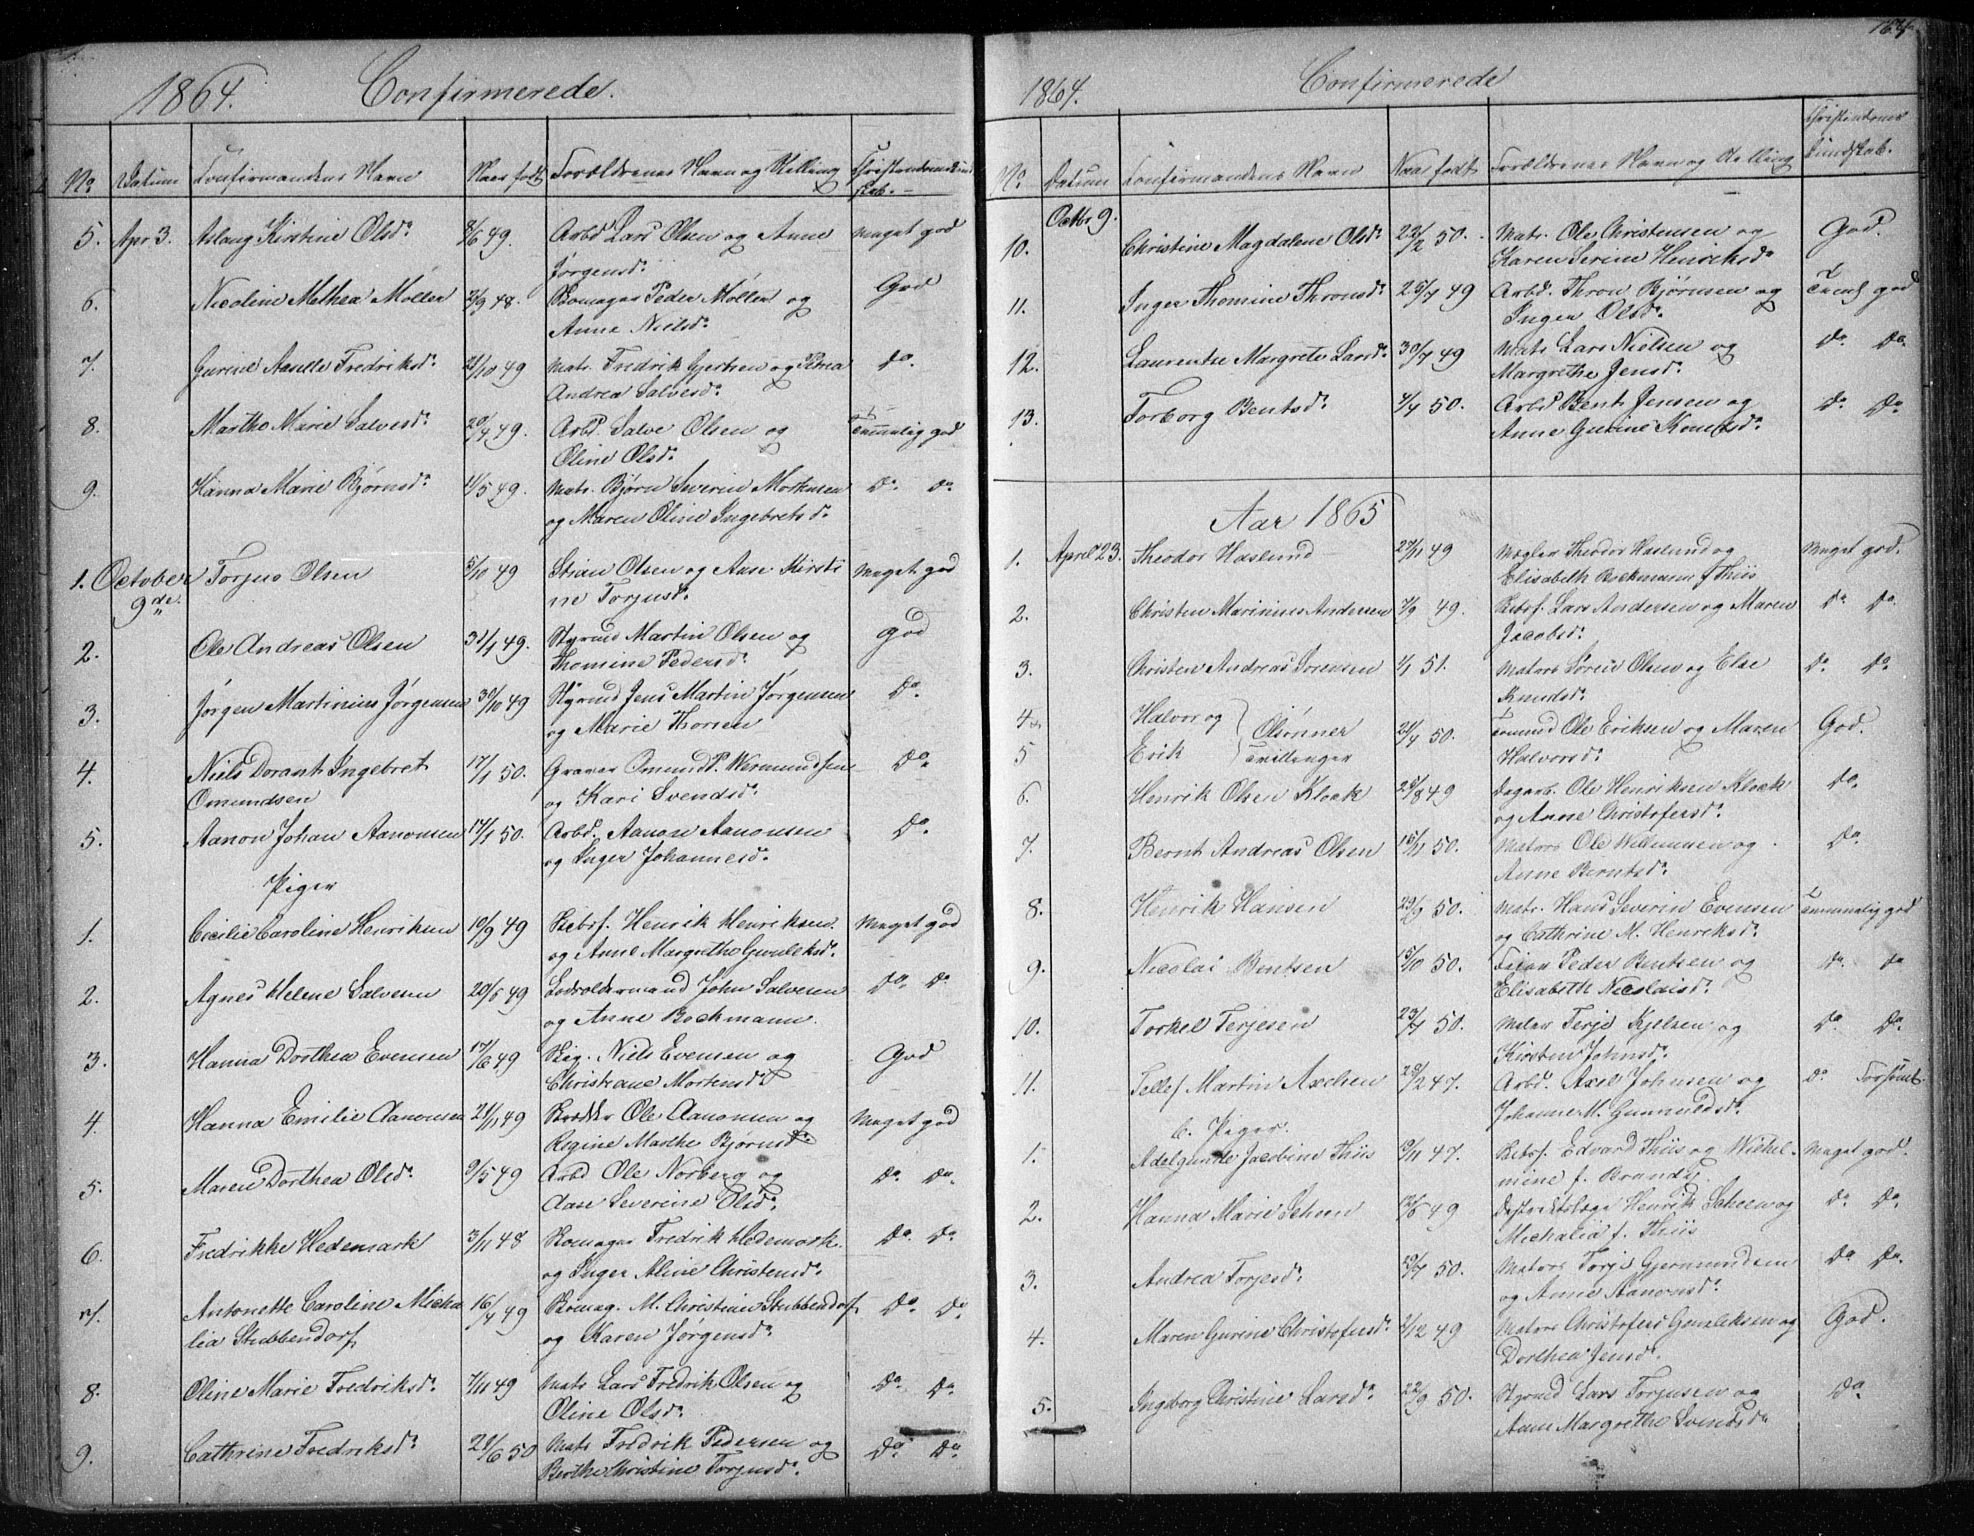 1864. Confirmerede.
No Datum Confirmandens Navn Naar født Forældrenes Navn og Stilling Christendomskundskab.
5. Apr 3. Aslaug Kirstine Olsd. 8/6 49. Arbd Lars Olsen og Anne Meget god
Jørgensd.
6. Nicoline Mathea Møller 2/9 48. Skomager Peder Møller og God
Anne Nielsd.
7. Gurine Aaselle Fredriksd. 21/10 49 Mats. Fredrik Gjertsen og Petrea Do.
Andrea Salvesd.
8. Marthe Marie Salvesd. 20/4 49. Arbd. Salve Olsen og Temmelig god
Oline Olsd.
9. Hanna Marie Bjørnsd. 11/5 49. Mats. Bjørn Severin Mortensen Do. Do
og Maren Oline Ingebretsd.
1. October Torjus Olsen 5/10 49 Stian Olsen og Aase Kirsti Meget god
9de. ne Torjusd.
2. Ole Andreas Olsen 31/1 49. Styrmd Martin Olsen og God
Thomine Pedersd.
3. Jørgen Martinius Jørgensen 30/10 49 Styrmd Jens Martin Jørgensen Do.
og Marie Thorsen
4. Niels Dorant Ingebret 17/1 50. Graver Omund P. Wermundsen Do.
Omundsen og Kari Svendsd.
5. Aanon Johan Aanonsen 17/1 50. Arbd. Aanon Aanonsen Do.
og Inger Johannesd.
Piger
1. Cicilie Caroline Henriksen 10/9 49 Skibsf. Henrik Henriksen Meget god
og Anne Margrethe Gunleksd.
2. Agnes Helene Salvesen 20/5 49 Lodsoldermand John Salvesen Do. Do.
og Anne Bockmann.
3. Hanna Dorthea Evensen 17/6 49 Niels Evensen og God
Christiane Mortensd.
4. Hanna Emilie Aanonsen 21/11 49 Ole Aanonsen og Meget god
Regine Marthe Bjørnsd.
5. Maren Dorthea Olsd. 9/5 49 Arbd Ole Norberg og Do. Do.
Aase Severine Olsd.
6. Fredrikke Hedemark 3/11 48 Skomager Fredrik Hedemark Do. Do.
og Inger Aline Christensd.
7. Antonette Caroline Micha 16/4 49 Skomag. M. Christian Stubbendorf Do. Do
lia Stubbendorf og Karen Jørgensd.
8. Oline Marie Fredriksd. 7/11 49 Mats Lars Fredrik Olsen og Do. Do.
Oline Olsd.
9. Cathrine Fredriksd. 21/6 50 Mats Fredrik Pedersen og Do. Do.
Berthe Christine Torjusd.
164
1864. Confirmerede
No. Datum Confirmandens Navn Naar født Forældrenes Navn og Stilling Christendoms kundskab.
Octbr 9.
10. Christine Magdalene Olsd. 22/2 50. Mats. Ole Christensen og God.
Karen Serine Henriksd.
11. Inger Thomine Thronsd. 25/7 49 Arbd. Thron Bjørnsen og Teml god
Inger Olsd.
12. Laurentse Margrete Larsd. 30/7 49 Mats Lars Nielsen og Do. Do.
Margrethe Jensd.
13. Torborg Bentsd. 4/4 50. Arbd Bent Jensen og Do. Do
Anne Gurine
Aar 1865
1. April 23. Theodor Haslund 27/11 49 Mægler Theodor Haslund og Meget god.
Elisabeth Bockmann f. Thiis
2. Christen Marinius Andersen 7/9 49. Skibsf. Lars Andersen og Maren Do Do.
Jacobsd.
3. Christen Andreas Sørensen 1/1 51. Matros Søren Olsen og Else Do. Do
Knudsd.
4 Halvor og Olsønner 21/4 50. Tommd Ole Eriksen og Maren God.
5 Erik Tvillinger Halvorsd.
6. Henrik Olsen Klock 29/8 49 Dagarb. Ole Henriksen Klock Do.
og Anne Christofersd.
7. Bernt Andreas Olsen 15/11 50. Matros Ole Willumsen og Do.
Anne Berntsd.
8. Henrik Hansen 29/9 50. Mats. Hans Severin Evensen Temmelig god
og Cathrine M. Henriksd.
9. Nicolai Bentsen 15/10 50. Peder Bentsen og Do. do
Elisabeth Nicolaisd.
10. Torkel Terjesen 23/7 50. Matros Terje Kjelsen og Do Do.
Kirsten Johnsd.
11. Tellef Martin Axelsen 20/2 47. Arbd. Axel Johnsen og Do Forsømt.
Johanne M. Gunnuldsd.
b. Piger.
1. Adelgunde Jacobine Thiis 19/11 47. Skibsf. Edvard Thiis og Wichel- Meget god.
mine f. Brandt
2. Hanna Marie Scheen 13/5 49 Distriktslæge Henrik Scheen og Do Do.
Michalia f. Thiis
3. Andrea Torjesd. 29/7 50. Matros Torje Gjermundsen Do Do.
og Anne Aanonsd.
4. Maren Gurine Christofersd. 2/12 49 Matros Christofer Gunleksen og God.
Dorthea Jensd.
5. Ingeborg Christine Larsd. 22/9 50. Styrmd Lars Torjusen og Do
Anne Margrethe Svendsd.